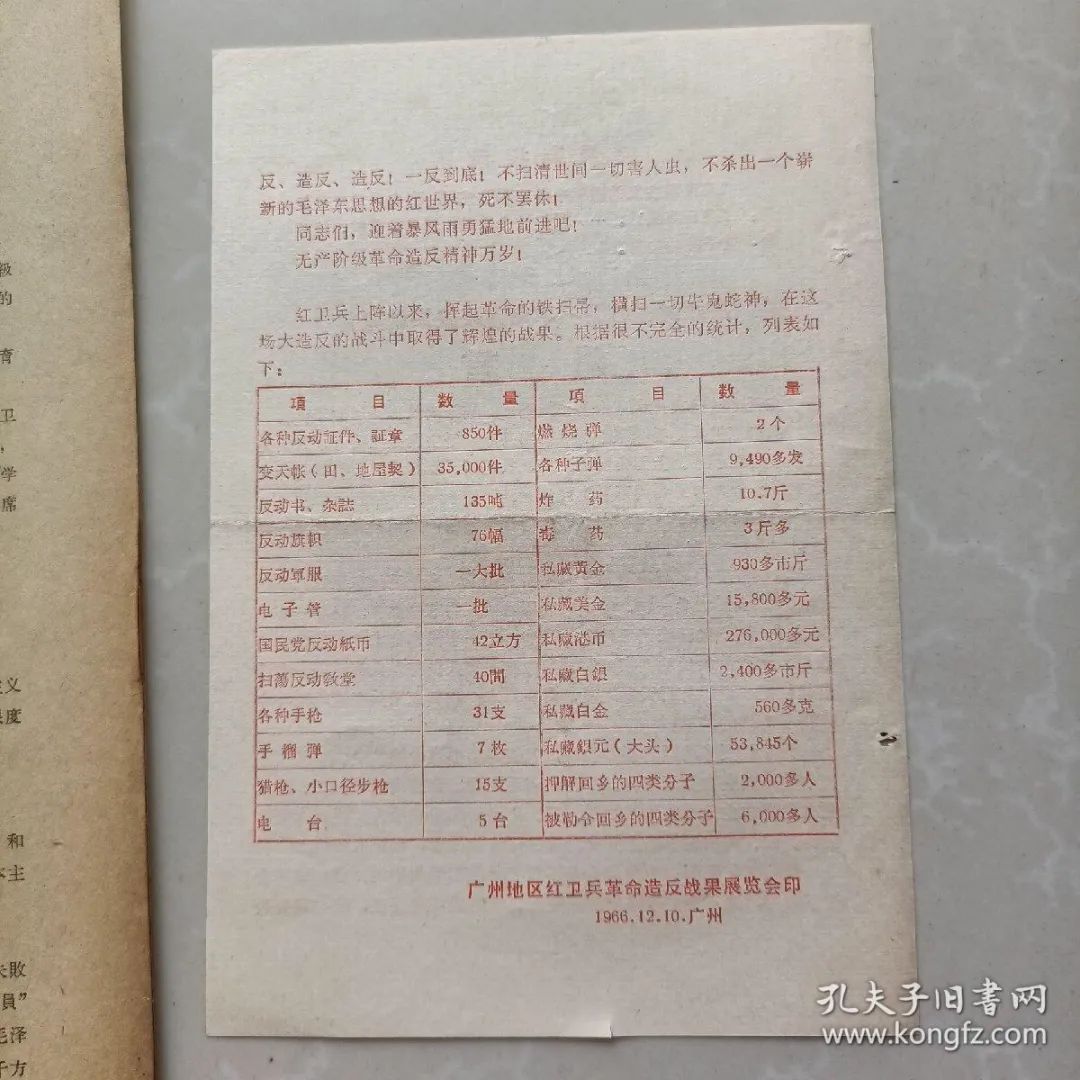 级
的
育
卫
，
学
席
主义
限度
和
本主
失敗
員”
毛泽
千方
反、造反、造反！一反到底！不扫清世间一切害人虫，不杀出一个崭
新的毛泽东思想的红世界，死不罢休！
同志们，迎着暴风雨勇猛地前进吧！
无产阶级革命造反精神万岁！
红卫兵上阵以来，挥起革命的铁扫帚，横扫一切牛鬼蛇神，在这
场大造反的战斗中取得了辉煌的战果。根据很不完全的统计，列表如
下：
項 目 数 量 項 目 数 量
各种反动証件、証章 850件 燃烧弹 2个
变天帐（田、地屋契） 35,000件 各种子弹 9,490多发
反动书、杂誌 135吨 炸 药 10.7斤
反动旗帜 76幅 毒 药 3斤多
反动軍服 一大批 私藏黄金 930多市斤
电子管 一批 私藏美金 15,800多元
国民党反动紙币 42立方 私藏港币 276,000多元
扫蕩反动教堂 40間 私藏白銀 2,400多市斤
各种手枪 31支 私藏白金 560多克
手榴弹 7枚 私藏銀元（大头） 53,845个
猎枪、小口径步枪 15支 押解回乡的四类分子 2,000多人
电 台 5台 被勒令回乡的四类分子 6,000多人
广州地区红卫兵革命造反战果展览会印
1966.12.10.广州
孔夫子旧书网
www.kongfz.com